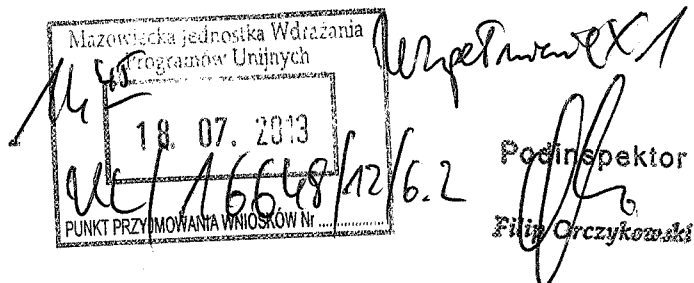 Mazowiecka Jednostka Wdrażania
Programów Unijnych
14 45
18. 07. 2013
/16648/12/6.2
PUNKT PRZYJMOWANIA WNIOSKÓW Nr ................
Uzupełnienie X 1
Podinspektor
Filip Orczykowski